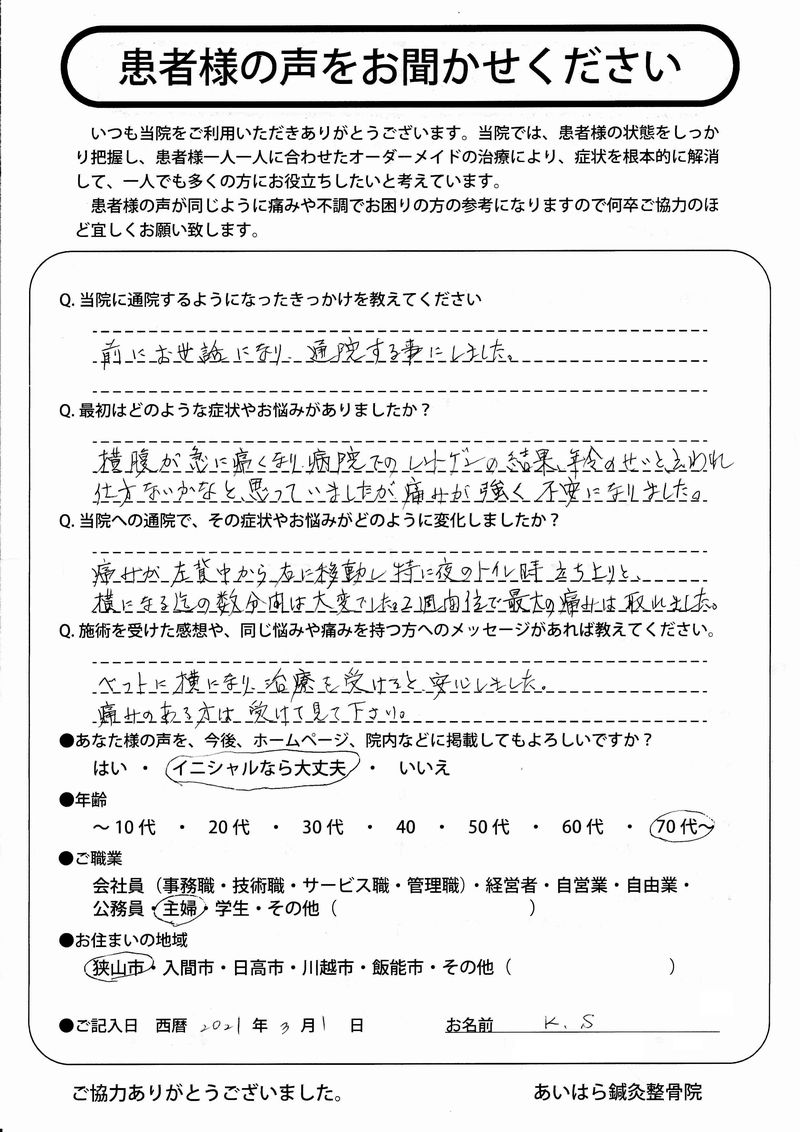 患者様の声をお聞かせください
いつも当院をご利用いただきありがとうございます。当院では、患者様の状態をしっか
り把握し、患者様一人一人に合わせたオーダーメイドの治療により、症状を根本的に解消
して、一人でも多くの方にお役立ちしたいと考えています。
患者様の声が同じように痛みや不調でお困りの方の参考になりますので何卒ご協力のほ
ど宜しくお願い致します。
Q. 当院に通院するようになったきっかけを教えてください
前にお世話になり、通院する事にしました。
Q. 最初はどのような症状やお悩みがありましたか？
横腹が急に痛くなり、病院でのレントゲンの結果、年令のせいと言われ
仕方ないかなと思っていましたが痛みが強く不安になりました。
Q. 当院への通院で、その症状やお悩みがどのように変化しましたか？
痛みが左背中から右に移動し特に夜のトイレ時立ち上りと、
横になる迄の数分間は大変でした。2週間位で最大の痛みは取れました。
Q. 施術を受けた感想や、同じ悩みや痛みを持つ方へのメッセージがあれば教えてください。
ベットに横になり、治療を受けると安心しました。
痛みのある方は受けて見て下さい。
●あなた様の声を、今後、ホームページ、院内などに掲載してもよろしいですか？
はい ・ イニシャルなら大丈夫 ・ いいえ
●年齢
～10代 ・ 20代 ・ 30代 ・ 40 ・ 50代 ・ 60代 ・ 70代～
●ご職業
会社員（事務職・技術職・サービス職・管理職）・経営者・自営業・自由業・
公務員・主婦・学生・その他（ ）
●お住まいの地域
狭山市・入間市・日高市・川越市・飯能市・その他（ ）
●ご記入日 西暦 2021 年 3 月 1 日 お名前 K.S
ご協力ありがとうございました。 あいはら鍼灸整骨院